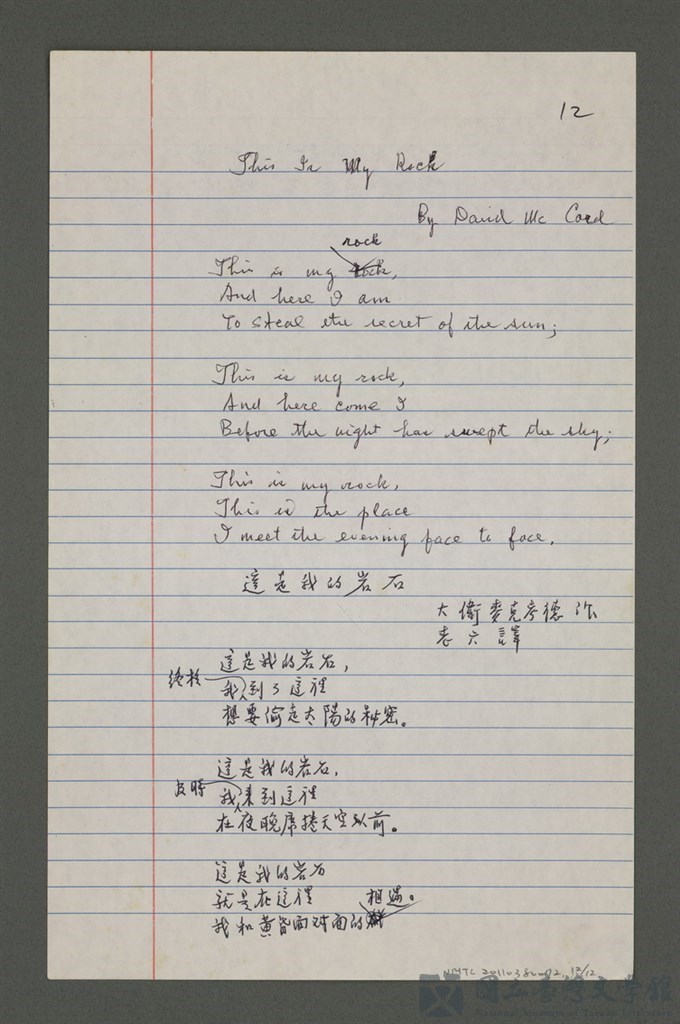 12
This Is My Rock
By David Mc Cord
rock
This is my rock,
And here I am
To steal the secret of the sun;
This is my rock,
And here come I
Before the night has swept the sky;
This is my rock,
This is the place
I meet the evening face to face.
這是我的岩石
大衛麥克考德作
志六譯
這是我的岩石,
終於
我到了這裡
想要偷走太陽的秘密。
這是我的岩石,
及時
我來到這裡
在夜晚席捲天空以前。
這是我的岩石
就是在這裡
相遇。
我和黃昏面对面的
NMTL 2011038 12/12
國立臺灣文學館
National Museum of Taiwan Literature